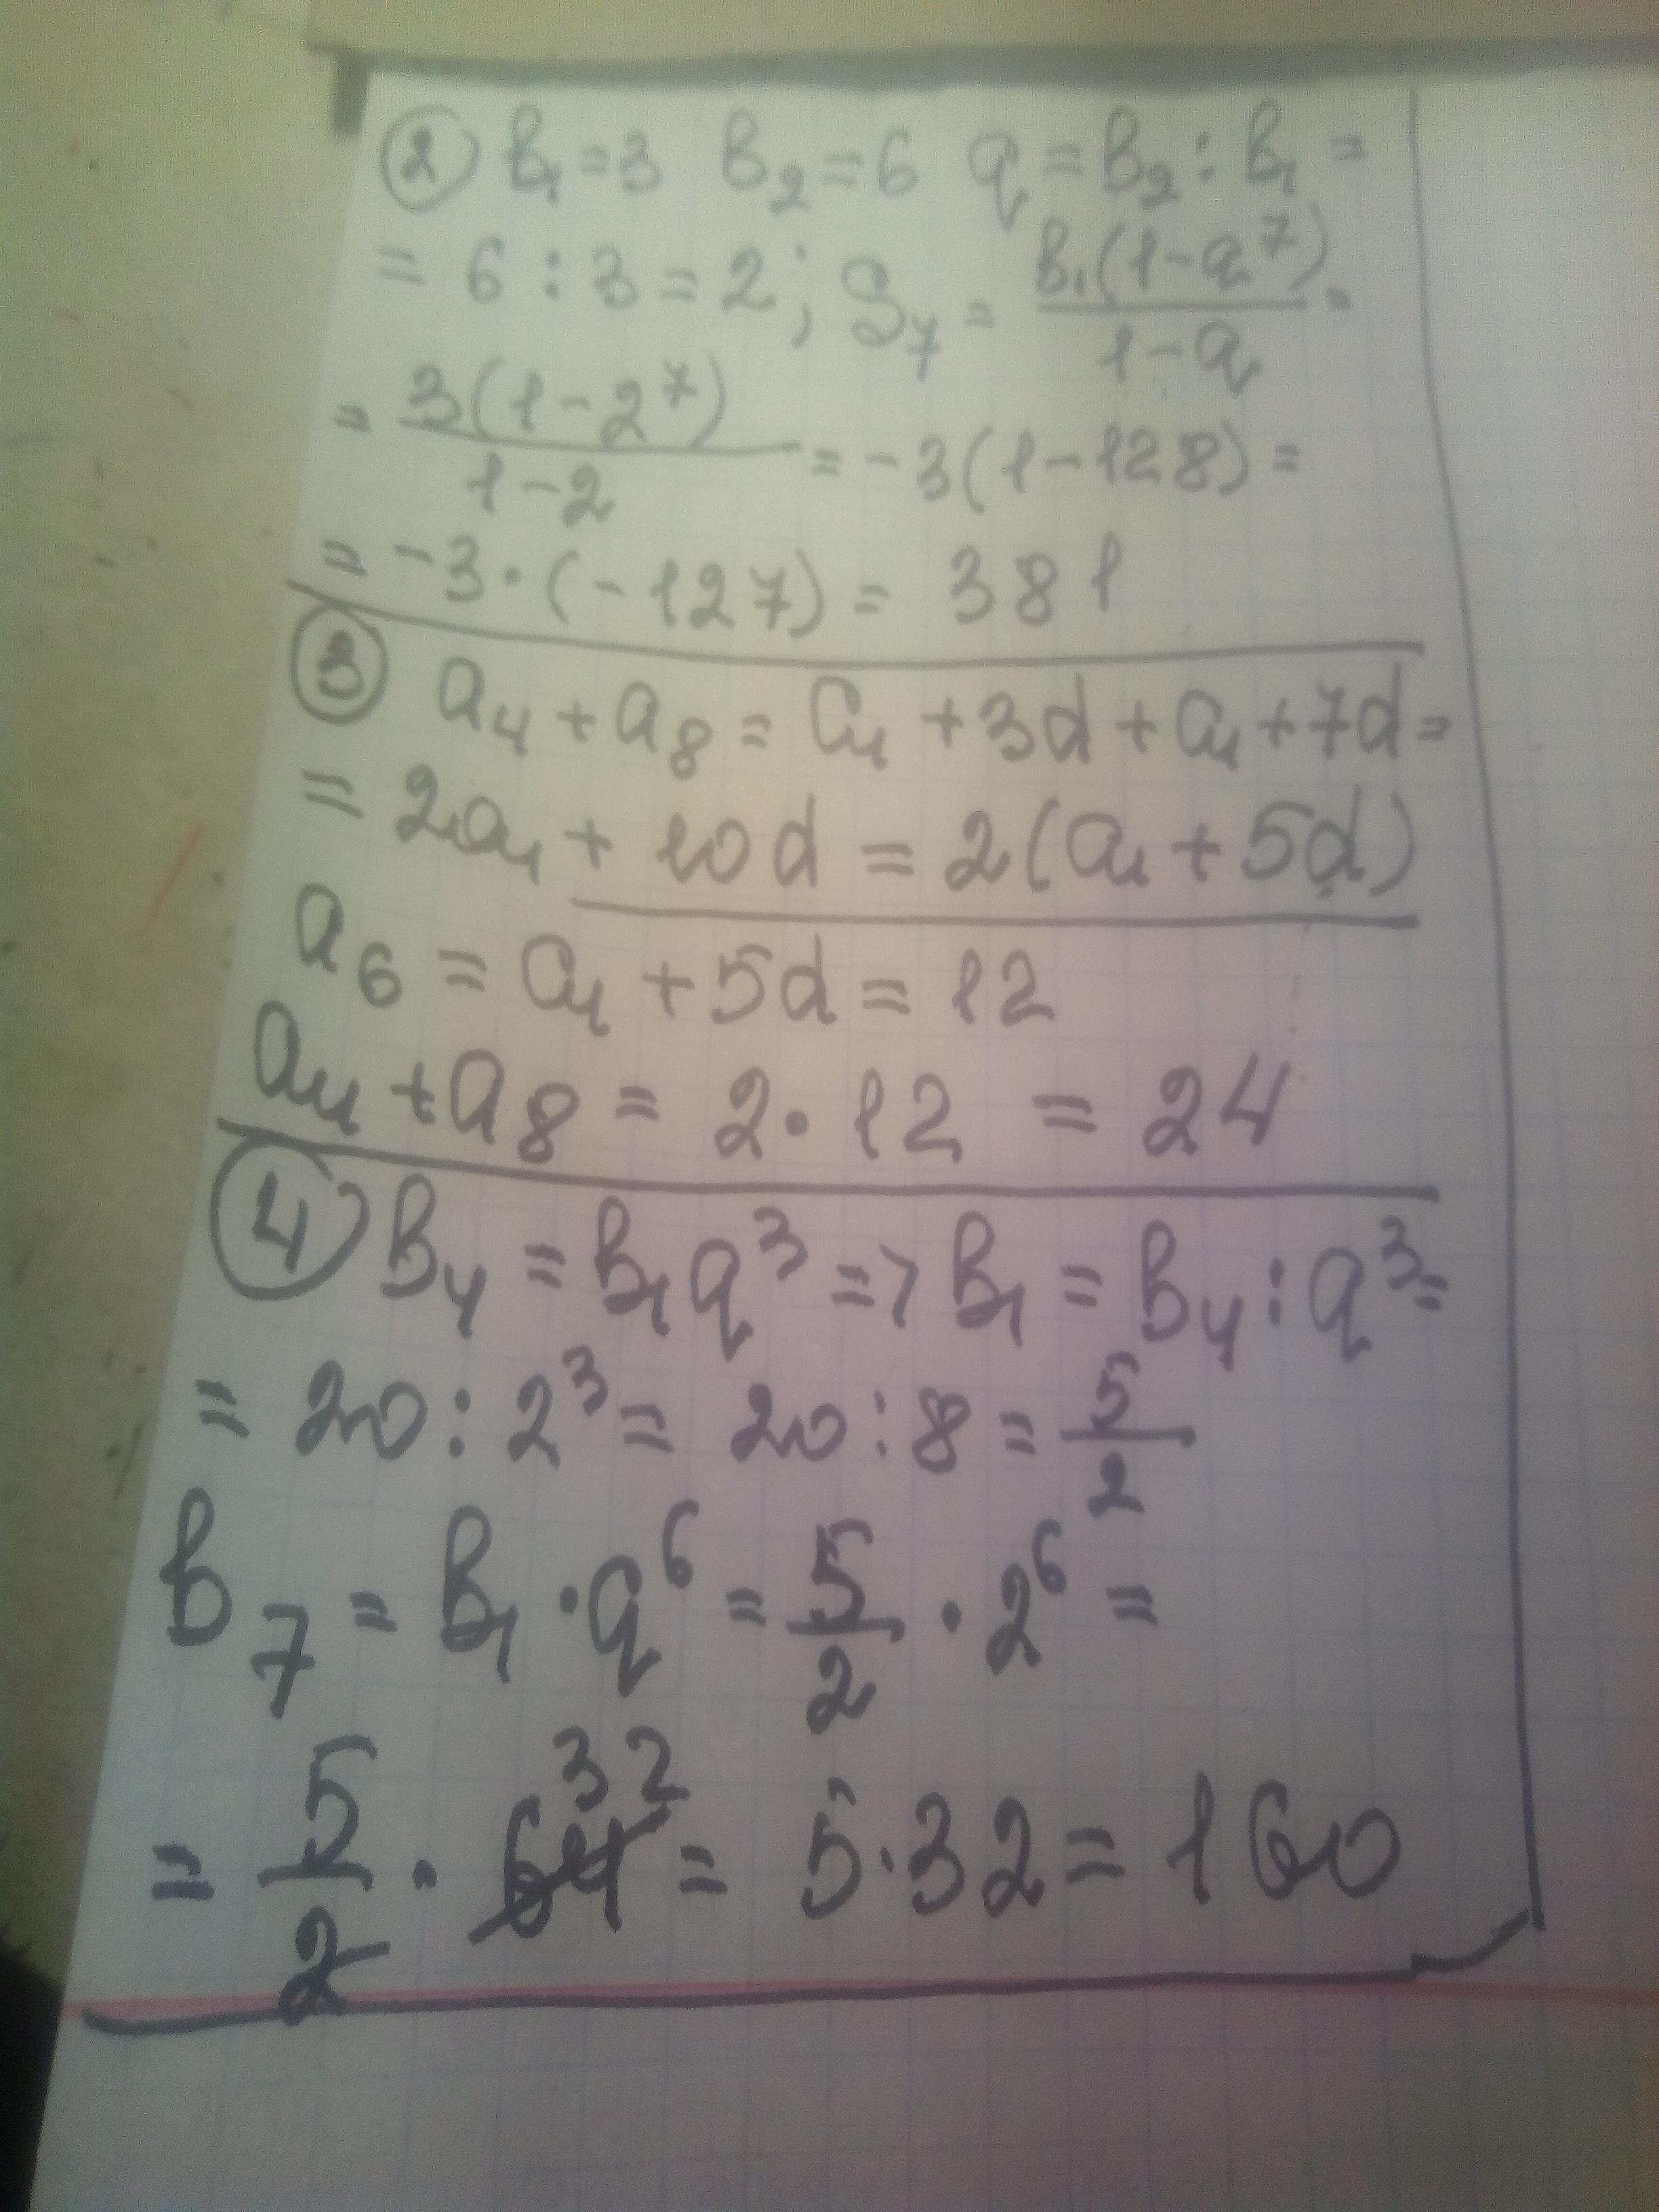 ② b₁ = 3 b₂ = 6 q = b₂ : b₁ =
= 6 : 3 = 2 ; S₇ = b₁(1-q⁷)/(1-q) =
= 3(1-2⁷)/(1-2) = -3(1-128) =
= -3·(-127) = 381
③ a₄ + a₈ = a₁ + 3d + a₁ + 7d =
= 2a₁ + 10d = 2(a₁ + 5d)
a₆ = a₁ + 5d = 12
a₄ + a₈ = 2·12 = 24
④ b₄ = b₁q³ => b₁ = b₄ : q³ =
= 20 : 2³ = 20 : 8 = 5/2
b₇ = b₁·q⁶ = 5/2 · 2⁶ =
= 5/2 · 64 32 = 5·32 = 160